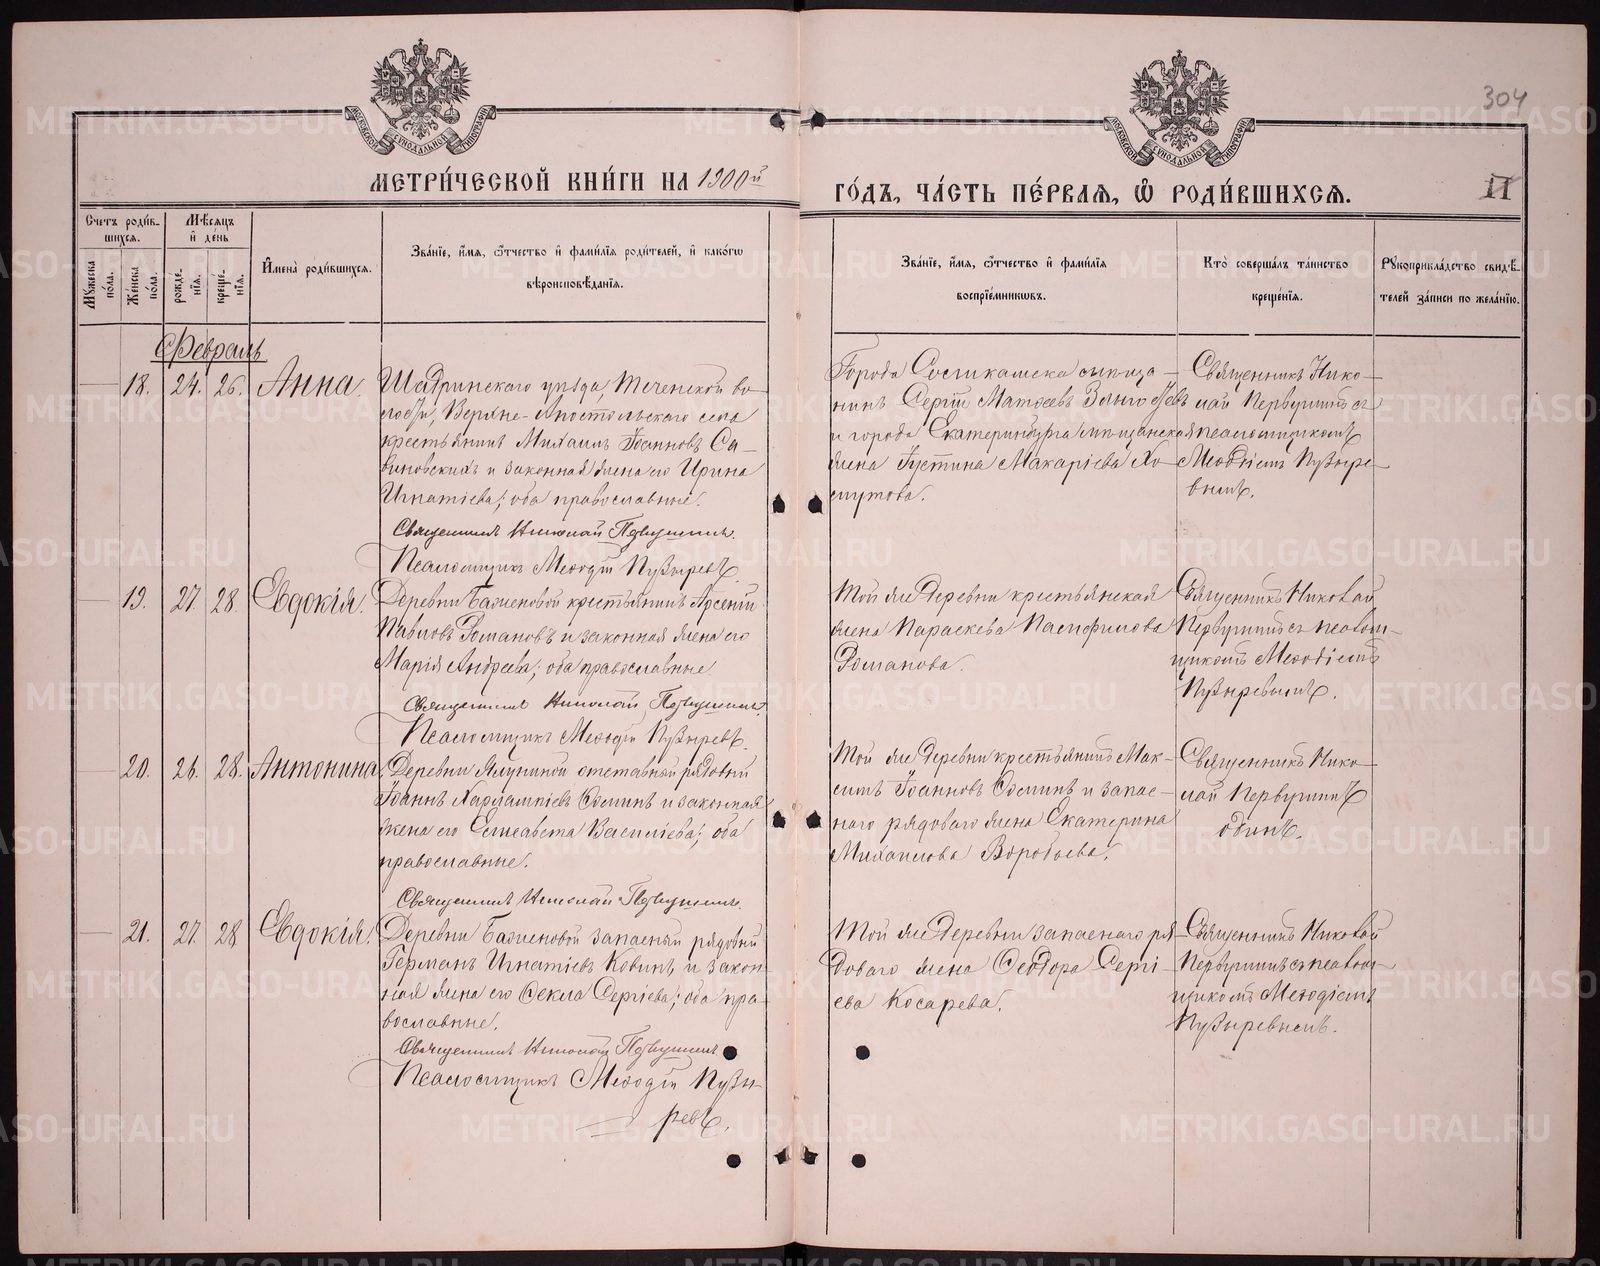 304
МОСКОВСКОЙ СѴНОДАЛЬНОЙ ТИПОГРАФІИ
МОСКОВСКОЙ СѴНОДАЛЬНОЙ ТИПОГРАФІИ
МЕТРИ́ЧЕСКОЙ КНИ́ГИ НА 1900й
ГО́ДЪ, ЧА́СТЬ ПЕ́РВАЯ, Ѽ РОДИ́ВШИХСЯ.
Счетъ роди́в-
шихся.
Мѣсяцъ
и҆ де́нь
Мꙋжеска
по́ла.
Же́нска
по́ла.
рожде-
нїя.
креще-
нїя.
И҆мена̀ роди́вшихся.
Зва́нїе, и҆́мя, ѻ҆́тчество и҆ фами́лїя роди́телей, и҆ како́гѡ
вѣроисповѣ́данїя.
Зва́нїе, и҆́мя, ѻ҆́тчество и҆ фами́лїя
воспрїе́мникѡвъ.
Кто̀ соверша́лъ та́инство
креще́нїя.
Рꙋкоприкла́дство свидѣ́-
телей за́писи по жела́нїю.
Февраль
18. 24. 26. Анна.
Шадринскаго уѣзда, Теченской во-
лости, Верхне-Апостольскаго села
крестьянинъ Михаилъ Іоанновъ Са-
виновскихъ и законная жена его Ирина
Игнатіева; оба православные.
Священникъ Николай Первушинъ.
Псаломщикъ Меѳодій Пузыревъ.
Города Сосликамска мѣща-
нинъ Сергій Матѳеевъ
и города Екатеринбурга мѣщанская
жена Іустина Макаріева Хо-
мутова.
Священникъ Нико-
лай Первушинъ съ
псаломщикомъ
Меѳодіемъ Пузыре-
вымъ.
19. 27. 28. Евдокія.
Деревни Баженовой крестьянинъ Арсеній
Павловъ Романовъ и законная жена его
Марія Андреева; оба православные
Священникъ Николай Первушинъ.
Псаломщикъ Меѳодій Пузыревъ.
Той же деревни крестьянская
жена Параскева Памфилова
Романова.
Священникъ Николай
Первушинъ съ псалом-
щикомъ Меѳодіемъ
Пузыревымъ.
20. 26. 28. Антонина.
Деревни Ялуниной отставной рядовый
Іоаннъ Харлампіевъ Соминъ и законная
жена его Елисавета Васильева; оба
православные.
Священникъ Николай Первушинъ.
Той же деревни крестьянинъ Мак-
симъ Іоанновъ Соминъ и запас-
наго рядоваго жена Екатерина
Михаилова Воробьева.
Священникъ Нико-
лай Первушинъ
одинъ.
21. 27. 28 Евдокія.
Деревни Баженовой запасный рядовый
Германъ Игнатіевъ Ковинъ и закон-
ная жена его Ѳекла Сергіева; оба пра-
вославные.
Священникъ Николай Первушинъ
Псаломщикъ Меѳодій Пузы-
ревъ.
Той же деревни запаснаго ря-
доваго жена Ѳеодора Сергі-
ева Косарева.
Священникъ Николай
Первушинъ съ псалом-
щикомъ Меѳодіемъ
Пузыревымъ.
METRIKI.GASO-URAL.RU